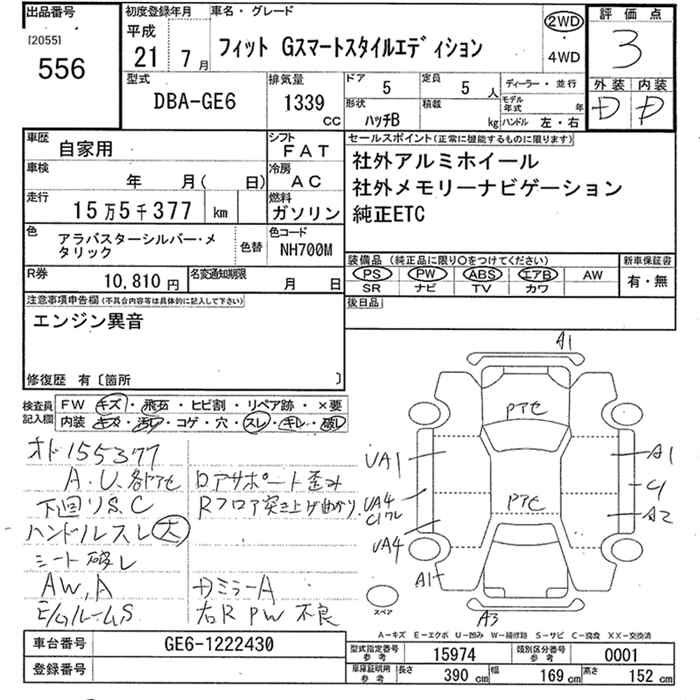 出品番号 初度登録年月 車名・グレード 2WD 評価点
[20551] 平成
556 21年 7月 フィット Gスマートスタイルエディション 4WD 3
型式 排気量 ドア 5 定員 5人 ディーラー・並行 外装 内装
DBA-GE6 1339 CC 形状 ハッチB 積載 kg モデル年式 年 ハンドル 左・右 D D
車歴 自家用 シフト FAT セールスポイント(正常に機能するものに限ります)
車検 年 月( 日) 冷房 AC 社外アルミホイール
走行 15万5千377 km 燃料 ガソリン 社外メモリーナビゲーション
純正ETC
色 アラバスターシルバー・メタリック 色替 色コード NH700M
装備品(純正品に限り○をつけてください) 新車保証書
PS PW ABS エアB AW 有・無
SR ナビ TV カワ
R券 10,810円 名変通知期限 月 日
後日品
注意事項申告欄(不具合内容等は具体的に記入して下さい)
エンジン異音
修復歴 有〔箇所 〕
検査員記入欄 FW キズ・飛石・ヒビ割・リペア跡・×要
内装 キズ・汚レ・コゲ・穴・スレ・キレ・破レ
オド155377
A.U.各所アセ ロアサポート歪み
下回りS.C Rフロア突き上げ曲がり
ハンドルスレ大
シート破レ
AW.A Dミラー A
E/GルームS 右R PW 不良
A1
Pアセ
UA1 A1
Pアセ
UA4 C1
UA4 A2
A1
スペア
A3
A-キズ E-エクボ U-凹み W-補修跡 S-サビ C-腐食 XX-交換済
車台番号 GE6-1222430
登録番号
型式指定番号 参考 15974 類別区分番号 参考 0001
車庫証明用 参考 長さ 390cm 幅 169cm 高さ 152cm